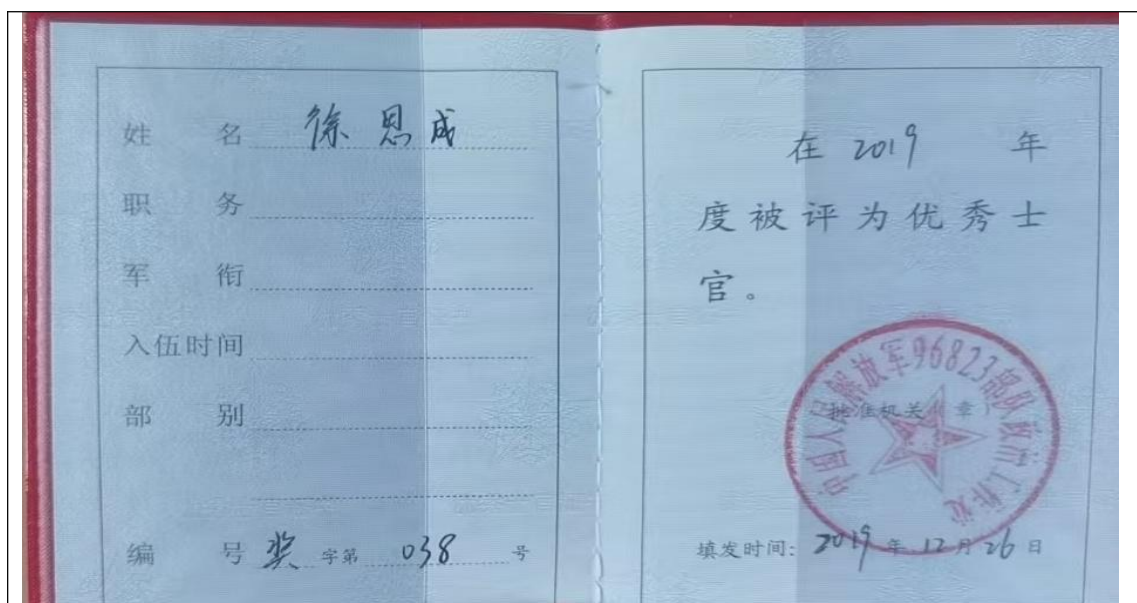 姓名 徐恩成
职务
军衔
入伍时间
部别
编号 奖 字第 038 号
在 2019 年
度被评为优秀士
官。
中国人民解放军96823部队政治工作处
批准机关（章）
填发时间：2019 年 12 月 26 日